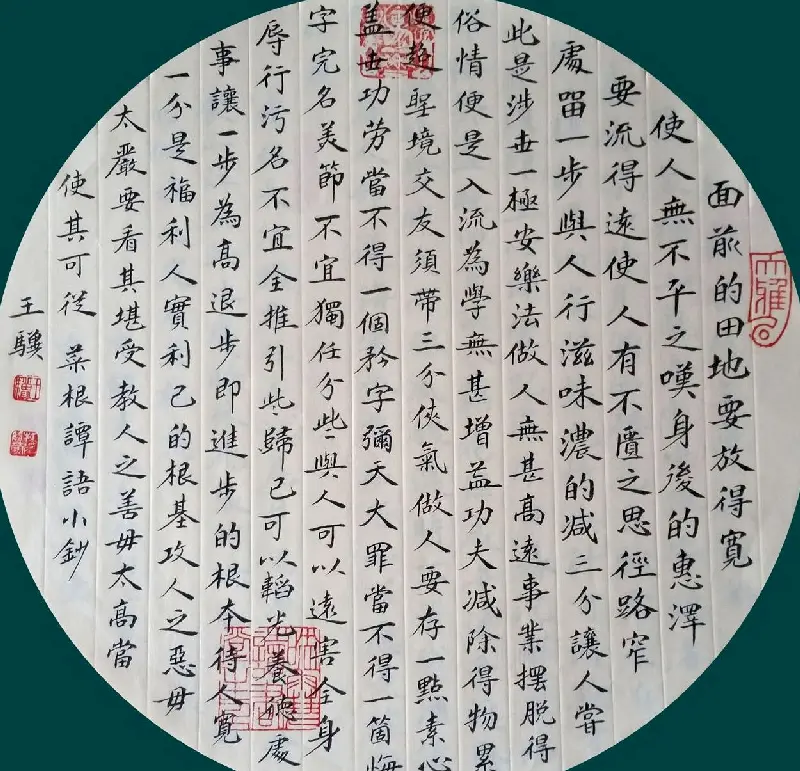 面前的田地要放得寬
使人無不平之嘆身後的惠澤
要流得遠使人有不匱之思徑路窄
處畱一步與人行滋味濃的减三分讓人嘗
此是涉世一極安樂法做人無甚高遠事業擺脱得
俗情便是入流為學無甚增益功夫減除得物累
便超聖境交友須帶三分俠氣做人要存一點素心
蓋世功劳當不得一個矜字彌天大罪當不得一箇悔
字完名美節不宜獨任分些與人可以遠害全身
辱行污名不宜全推引些歸己可以韜光養德處
事讓一步為高退步即進步的根本待人寬
一分是福利人實利己的根基攻人之惡毋
太嚴要看其堪受教人之善毋太高當
使其可從 菜根譚語小鈔
王